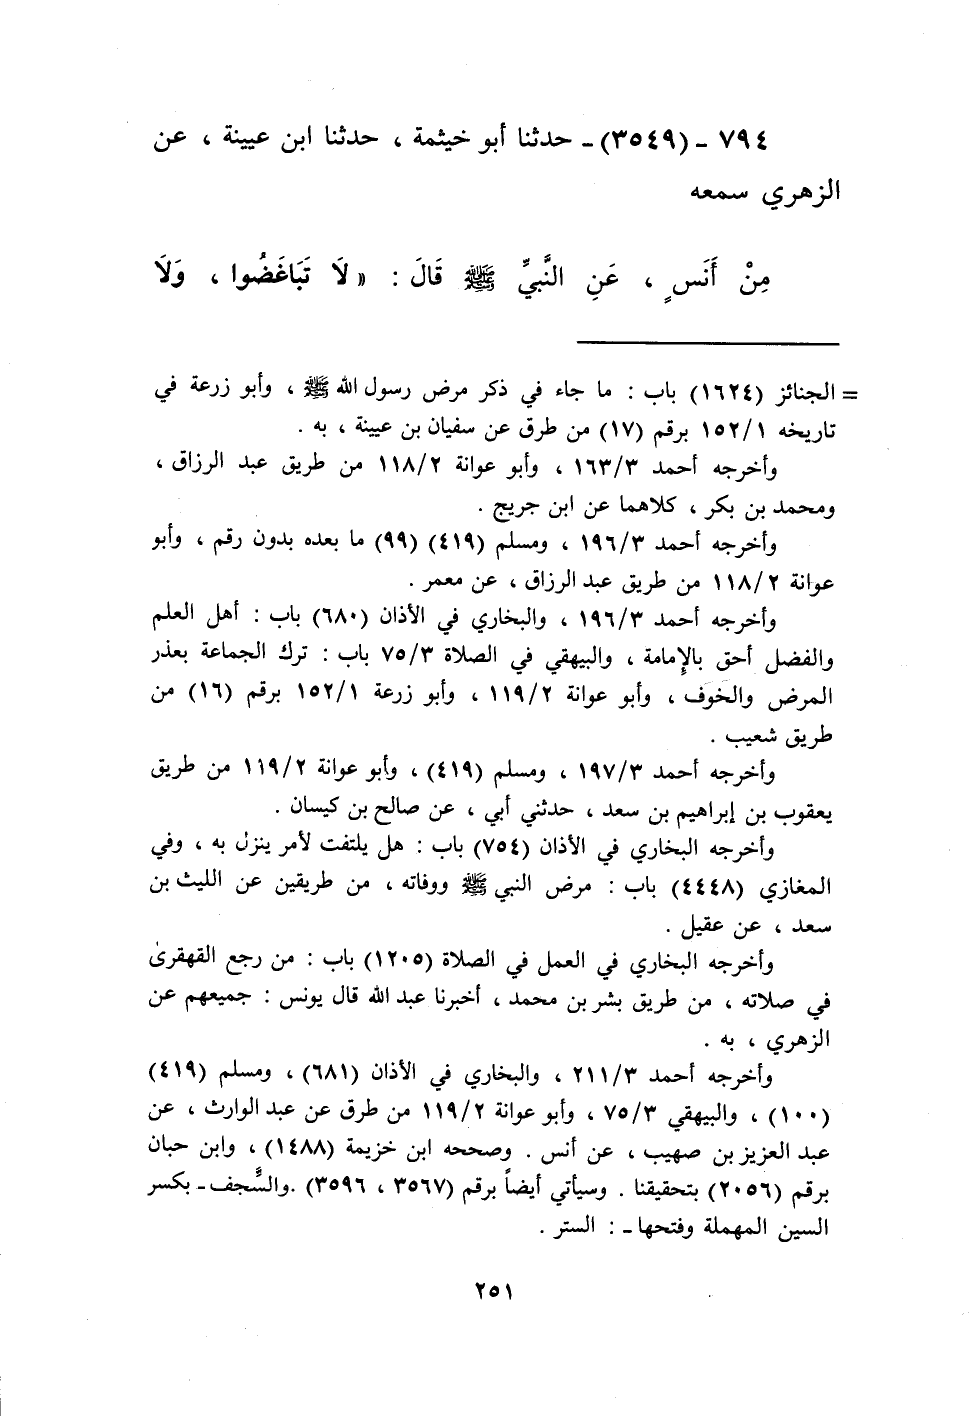 ٧٩٤ ـ (٣٥٤٩) ـ حدثنا أبو خيثمة ، حدثنا ابن عيينة ، عن
الزهري سمعه
مِنْ أَنَسٍ ، عَنِ النَّبِيِّ ﷺ قَالَ : « لَا تَبَاغَضُوا ، وَلَا
= الجنائز (١٦٢٤) باب : ما جاء في ذكر مرض رسول الله ﷺ ، وأبو زرعة في
تاريخه ١٥٢/١ برقم (١٧) من طرق عن سفيان بن عيينة ، به .
وأخرجه أحمد ١٦٣/٣ ، وأبو عوانة ١١٨/٢ من طريق عبد الرزاق ،
ومحمد بن بكر ، كلاهما عن ابن جريج .
وأخرجه أحمد ١٩٦/٣ ، ومسلم (٤١٩) (٩٩) ما بعده بدون رقم ، وأبو
عوانة ١١٨/٢ من طريق عبد الرزاق ، عن معمر .
وأخرجه أحمد ١٩٦/٣ ، والبخاري في الأذان (٦٨٠) باب : أهل العلم
والفضل أحق بالإمامة ، والبيهقي في الصلاة ٧٥/٣ باب : ترك الجماعة بعذر
المرض والخوف ، وأبو عوانة ١١٩/٢ ، وأبو زرعة ١٥٢/١ برقم (١٦) من
طريق شعيب .
وأخرجه أحمد ١٩٧/٣ ، ومسلم (٤١٩) ، وأبو عوانة ١١٩/٢ من طريق
يعقوب بن إبراهيم بن سعد ، حدثني أبي ، عن صالح بن كيسان .
وأخرجه البخاري في الأذان (٧٥٤) باب : هل يلتفت لأمر ينزل به ، وفي
المغازي (٤٤٤٨) باب : مرض النبي ﷺ ووفاته ، من طريقين عن الليث بن
سعد ، عن عقيل .
وأخرجه البخاري في العمل في الصلاة (١٢٠٥) باب : من رجع القهقرىٰ
في صلاته ، من طريق بشر بن محمد ، أخبرنا عبد الله قال يونس : جميعهم عن
الزهري ، به .
وأخرجه أحمد ٢١١/٣ ، والبخاري في الأذان (٦٨١) ، ومسلم (٤١٩)
(١٠٠) ، والبيهقي ٧٥/٣ ، وأبو عوانة ١١٩/٢ من طرق عن عبد الوارث ، عن
عبد العزيز بن صهيب ، عن أنس . وصححه ابن خزيمة (١٤٨٨) ، وابن حبان
برقم (٢٠٥٦) بتحقيقنا . وسيأتي أيضاً برقم (٣٥٦٧ ، ٣٥٩٦) .والسَّجف ـ بكسر
السين المهملة وفتحها ـ : الستر .
٢٥١